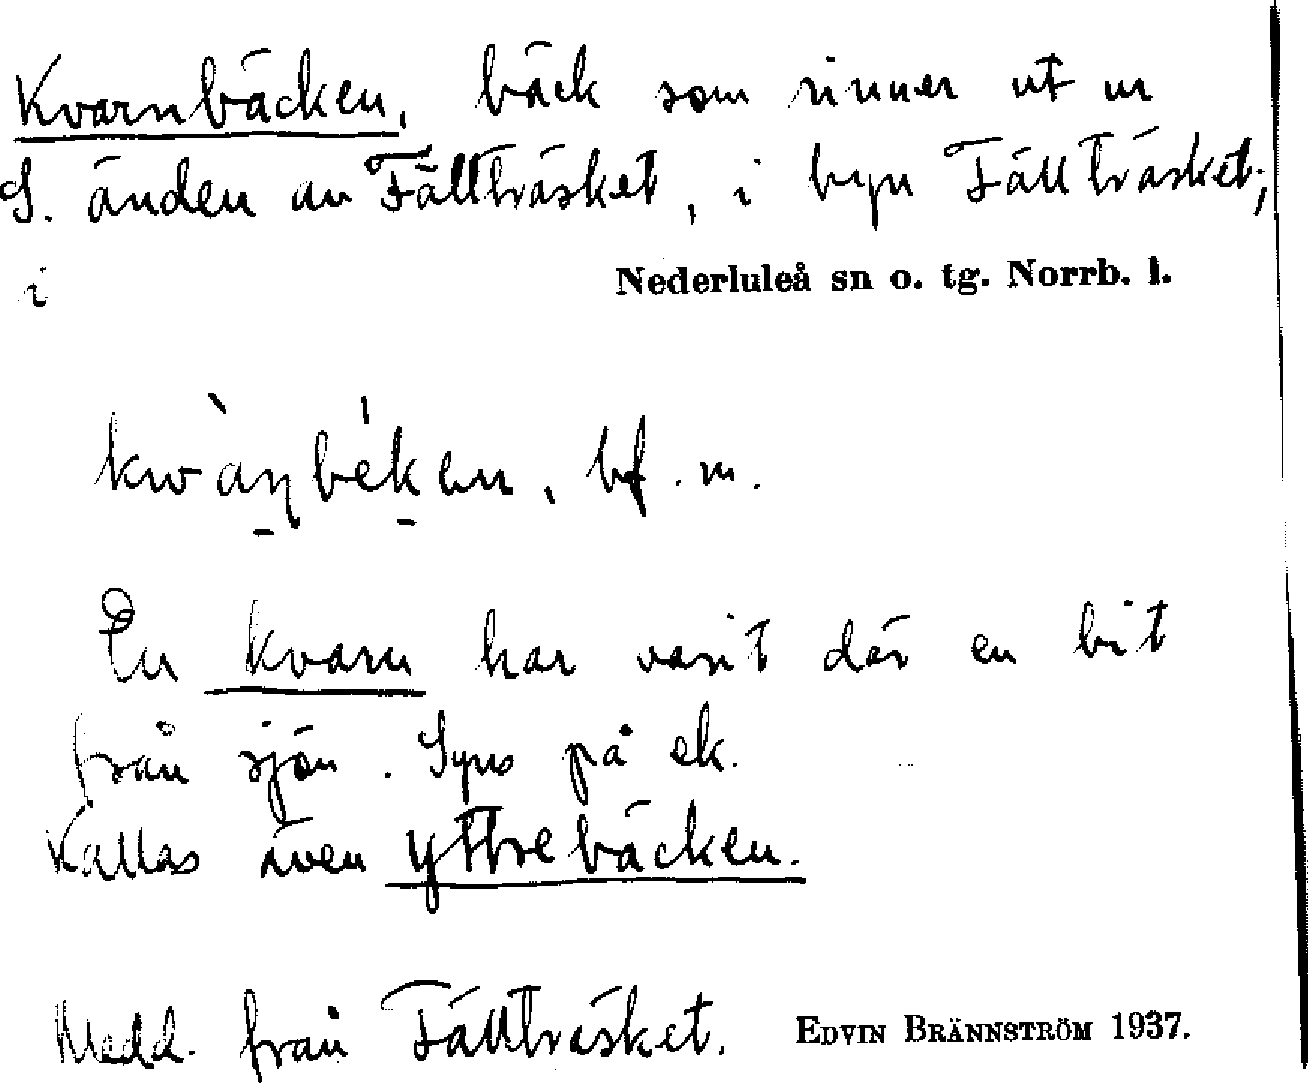 Kvarnbäcken, bäck som rinner ut ur
S. änden av Fällträsket, i byn Fällträsket,
i
Nederluleå sn o. tg. Norrb. l.
bf. m.
En kvarn har varit där en bit
från sjön. Syns på ek.
Kallas även Yttrebäcken.
Medd. från Fällträsket.
EDVIN BRÄNNSTRÖM 1937.